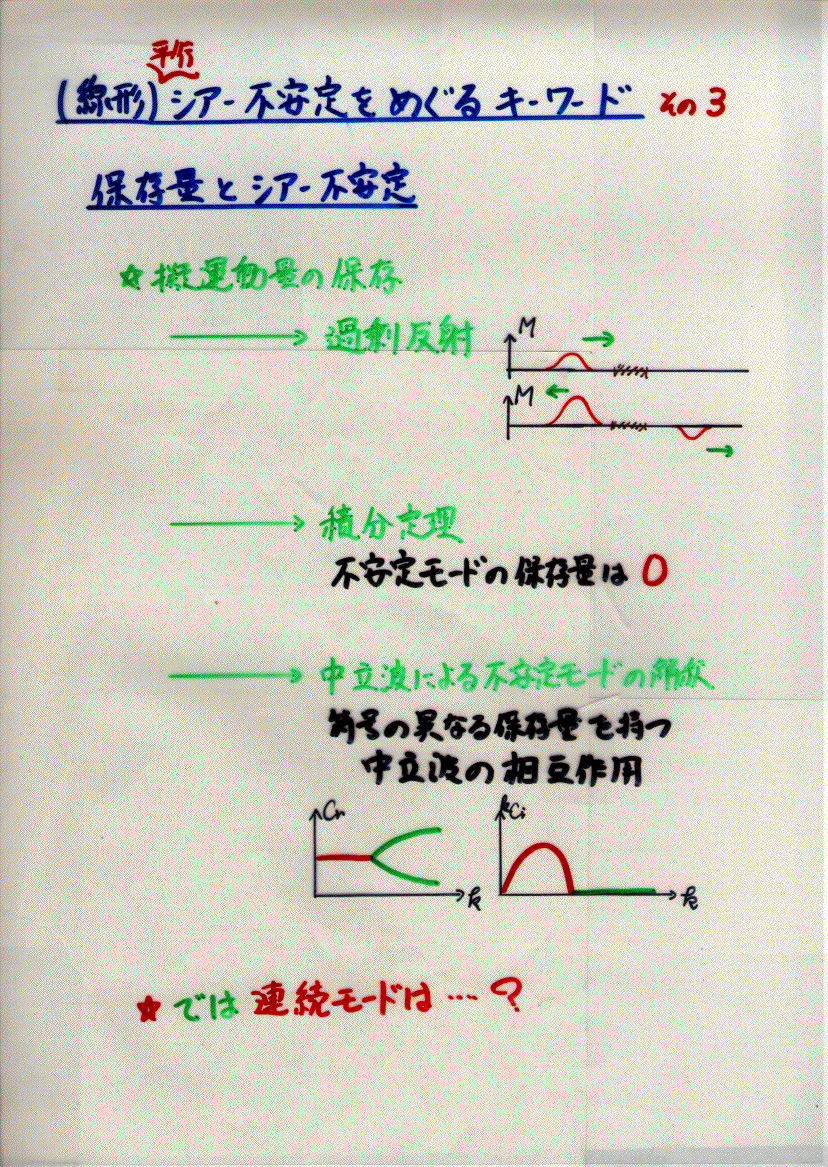 平行
(線形)シアー不安定をめぐるキーワード その3
保存量とシアー不安定
☆擬運動量の保存
過剰反射
M
M
積分定理
不安定モードの保存量は0
中立波による不安定モードの解釈
符号の異なる保存量を持つ
中立波の相互作用
Cr
k
kCi
k
★では連続モードは…?